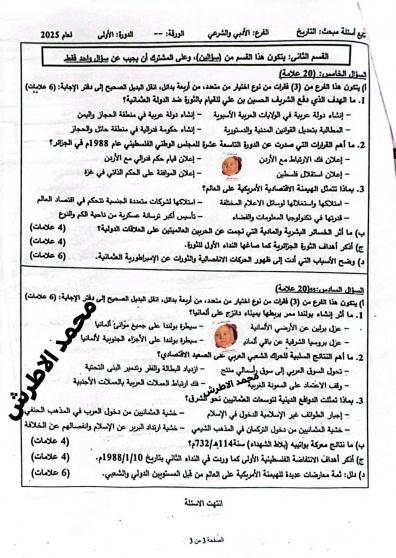 تابع أسئلة مبحث: التاريخ الفرع: الأدبي والشرعي الورقة: -- الدورة: الأولى لعام 2025
القسم الثاني: يتكون هذا القسم من (سؤالين)، وعلى المشترك أن يجيب عن سؤال واحد فقط.
السؤال الخامس: (20 علامة)
أ) يتكون هذا الفرع من (3) فقرات من نوع اختيار من متعدد، من أربعة بدائل، انقل البديل الصحيح إلى دفتر الإجابة: (6 علامات)
1. ما الهدف الذي دفع الشريف الحسين بن علي للقيام بالثورة ضد الدولة العثمانية؟
– إنشاء دولة عربية في الولايات العربية الآسيوية – إنشاء دولة عربية في منطقة الحجاز واليمن
– المطالبة بتعديل القوانين المدنية والدستورية – إنشاء حكومة فدرالية في منطقة حائل والحجاز
2. ما أهم القرارات التي صدرت عن الدورة التاسعة عشرة للمجلس الوطني الفلسطيني عام 1988م في الجزائر؟
– إعلان فك الارتباط مع الأردن – إعلان قيام حكم فدرالي مع الأردن
– إعلان استقلال فلسطين – إعلان الموافقة على الحكم الذاتي في غزة
3. بماذا تتمثل الهيمنة الاقتصادية الأمريكية على العالم؟
– امتلاكها واستغلالها لوسائل الاعلام المختلفة – امتلاكها لشركات متعددة الجنسية تتحكم في اقتصاد العالم
– قدرتها في تكنولوجيا المعلومات والفضاء – تأسيس أكبر ترسانة عسكرية من ناحية الكم والنوع
ب) ما أثر الخسائر البشرية والمادية التي نجمت عن الحربين العالميتين على العلاقات الدولية؟ (4 علامات)
ج) أذكر أهداف الثورة الجزائرية كما صاغها النداء الأول للثورة. (4 علامات)
د) وضح الأسباب التي أدت إلى ظهور الحركات الانفصالية والثورات عن الإمبراطورية العثمانية. (6 علامات)
السؤال السادس: (20 علامة)
أ) يتكون هذا الفرع من (3) فقرات من نوع اختيار من متعدد، من أربعة بدائل، انقل البديل الصحيح إلى دفتر الإجابة: (6 علامات)
1. ما أثر إنشاء بولندا ممر يربطها بميناء دانزج على ألمانيا؟
– عزل برلين عن الأراضي الألمانية – سيطرة بولندا على جميع موانئ ألمانيا
– عزل بروسيا الشرقية عن باقي ألمانيا – سيطرة بولندا على الأجزاء الجنوبية لألمانيا
2. ما أهم النتائج السلبية للحراك الشعبي العربي على الصعيد الاقتصادي؟
– تحول السوق العربي إلى سوق رأسمالي منتج – ازدياد البطالة والفقر وتدمير البنى التحتية
– وقف الاعتماد على المعونة الغربية – فك ارتباط العملات العربية بالعملات الأجنبية
3. بماذا تمثلت الدوافع الدينية لتوسعات العثمانيين نحو الشرق؟
– إجبار الطوائف غير الإسلامية الدخول في الإسلام – خشية العثمانيين من دخول العرب في المذهب الحنفي
– خشية العثمانيين من دخول التركمان في المذهب الشيعي – خشية ارتداد البربر عن الإسلام وانفصالهم عن الخلافة
ب) ما نتائج معركة بواتييه (بلاط الشهداء) سنة 114هـ/732م؟ (4 علامات)
ج) أذكر أهداف الانتفاضة الفلسطينية الأولى كما وردت في النداء الثاني بتاريخ 1988/1/10م (4 علامات)
د) دلل: ثمة معارضات عديدة للهيمنة الأمريكية على العالم من قبل المستويين الدولي والشعبي. (6 علامات)
انتهت الاسئلة
الصفحة 3 من 3
محمد الاطرش
محمد الاطرش